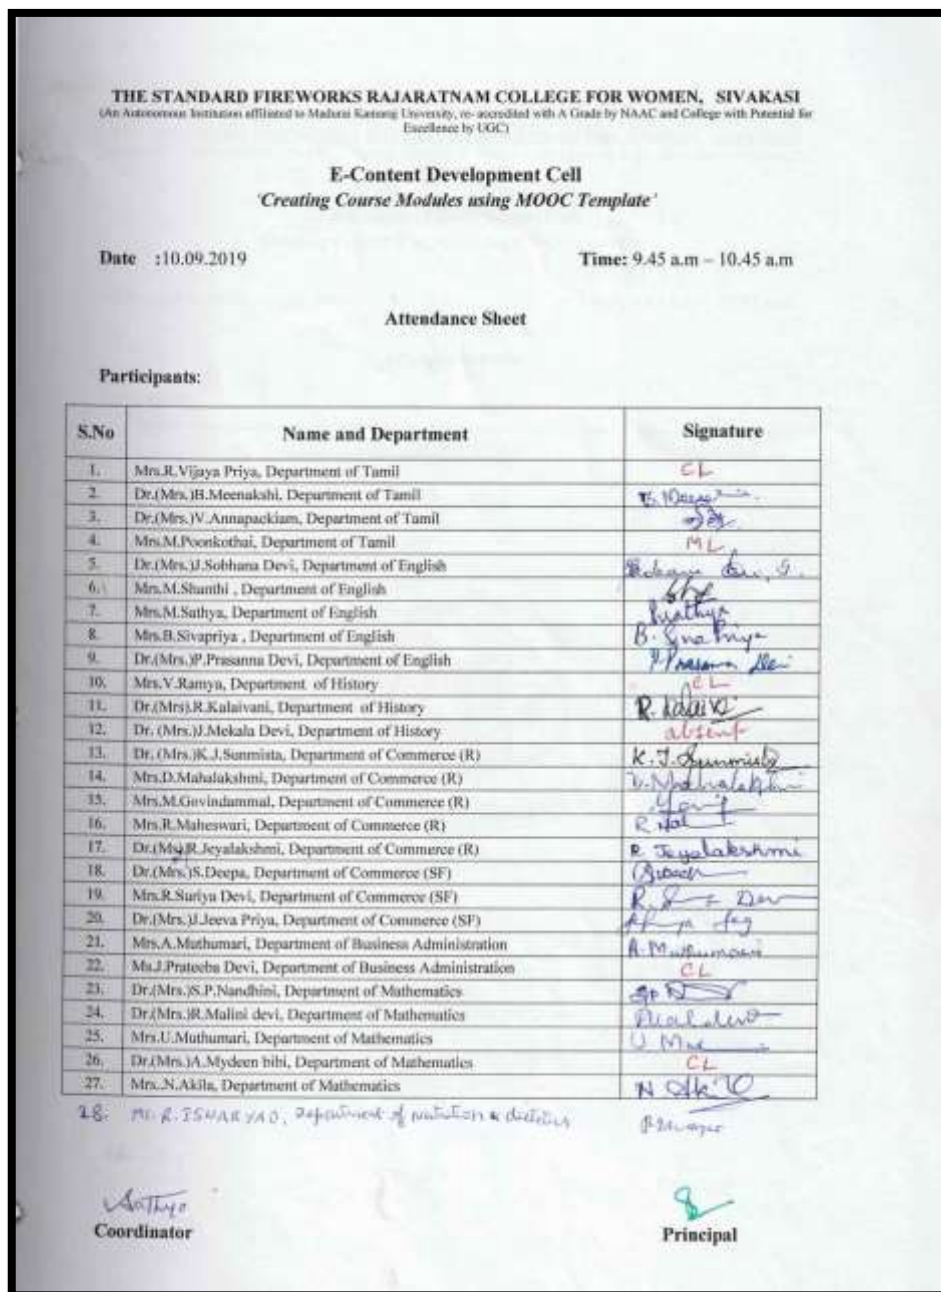 THE STANDARD FIREWORKS RAJARATNAM COLLEGE FOR WOMEN, SIVAKASI
(An Autonomous Institution affiliated to Madurai Kamaraj University, re- accredited with A Grade by NAAC and College with Potential for
Excellence by UGC)
E-Content Development Cell
'Creating Course Modules using MOOC Template'
Date :10.09.2019 Time: 9.45 a.m – 10.45 a.m
Attendance Sheet
Participants:
S.No Name and Department Signature
1. Mrs.R.Vijaya Priya, Department of Tamil CL
2. Dr.(Mrs.)B.Meenakshi, Department of Tamil
3. Dr.(Mrs.)V.Annapackiam, Department of Tamil
4. Mrs.M.Poonkothai, Department of Tamil ML
5. Dr.(Mrs.)J.Sobhana Devi, Department of English
6. Mrs.M.Shanthi , Department of English
7. Mrs.M.Sathya, Department of English
8. Mrs.B.Sivapriya , Department of English B. Siva Priya
9. Dr.(Mrs.)P.Prasanna Devi, Department of English P Prasanna Devi
10. Mrs.V.Ramya, Department of History CL
11. Dr.(Mrs).R.Kalaivani, Department of History
12. Dr. (Mrs.)J.Mekala Devi, Department of History absent
13. Dr. (Mrs.)K.J.Sunmista, Department of Commerce (R) K. J. Sunmista
14. Mrs.D.Mahalakshmi, Department of Commerce (R) D. Mahalakshmi
15. Mrs.M.Govindammal, Department of Commerce (R)
16. Mrs.R.Maheswari, Department of Commerce (R)
17. Dr.(Ms).R.Jeyalakshmi, Department of Commerce (R) R Jeyalakshmi
18. Dr.(Mrs.)S.Deepa, Department of Commerce (SF)
19. Mrs.R.Suriya Devi, Department of Commerce (SF)
20. Dr.(Mrs.)J.Jeeva Priya, Department of Commerce (SF)
21. Mrs.A.Muthumari, Department of Business Administration A. Muthumari
22. Ms.J.Prateeba Devi, Department of Business Administration CL
23. Dr.(Mrs.)S.P.Nandhini, Department of Mathematics
24. Dr.(Mrs.)R.Malini devi, Department of Mathematics
25. Mrs.U.Muthumari, Department of Mathematics
26. Dr.(Mrs.)A.Mydeen bibi, Department of Mathematics CL
27. Mrs..N.Akila, Department of Mathematics N Akila
28. Department of Nutrition & dietetics
Sathya
Coordinator Principal